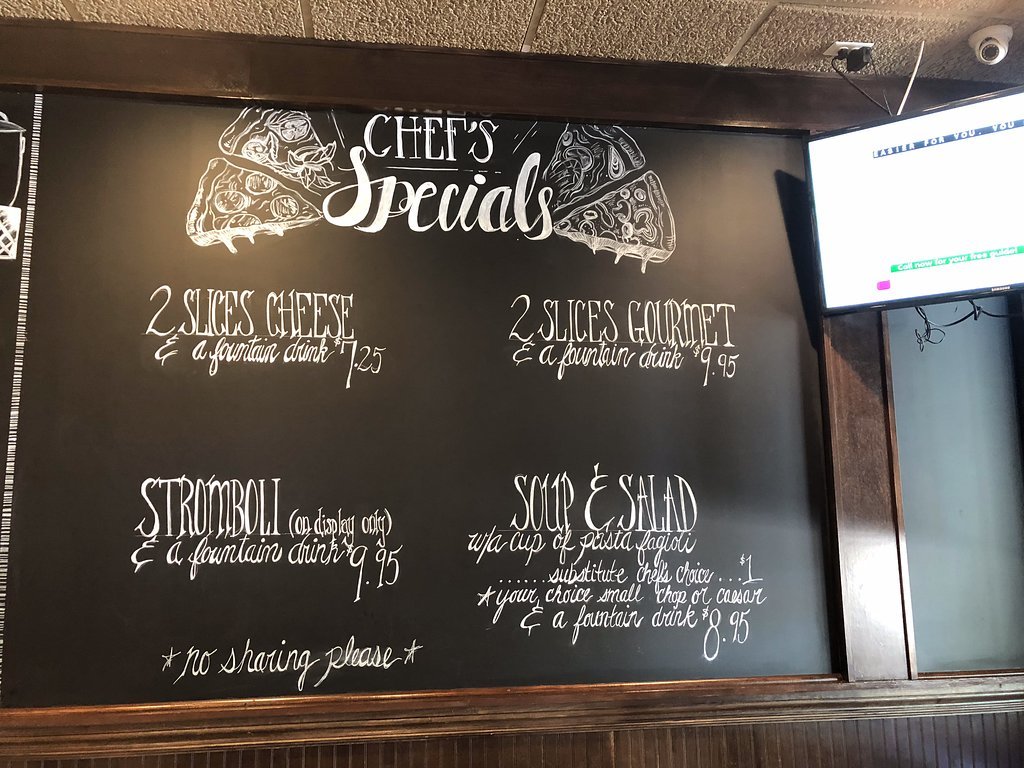 CHEF'S
Specials
2 SLICES CHEESE
& a fountain drink $7.25
2 SLICES GOURMET
& a fountain drink $9.95
STROMBOLI (on display only)
& a fountain drink $9.95
SOUP & SALAD
w/a cup of pasta fagioli
......substitute chef's choice...$1
*your choice small chop or caesar
& a fountain drink $8.95
*no sharing please*
EASIER FOR YOU. YOU
Call now for your free guide!
SAMSUNG